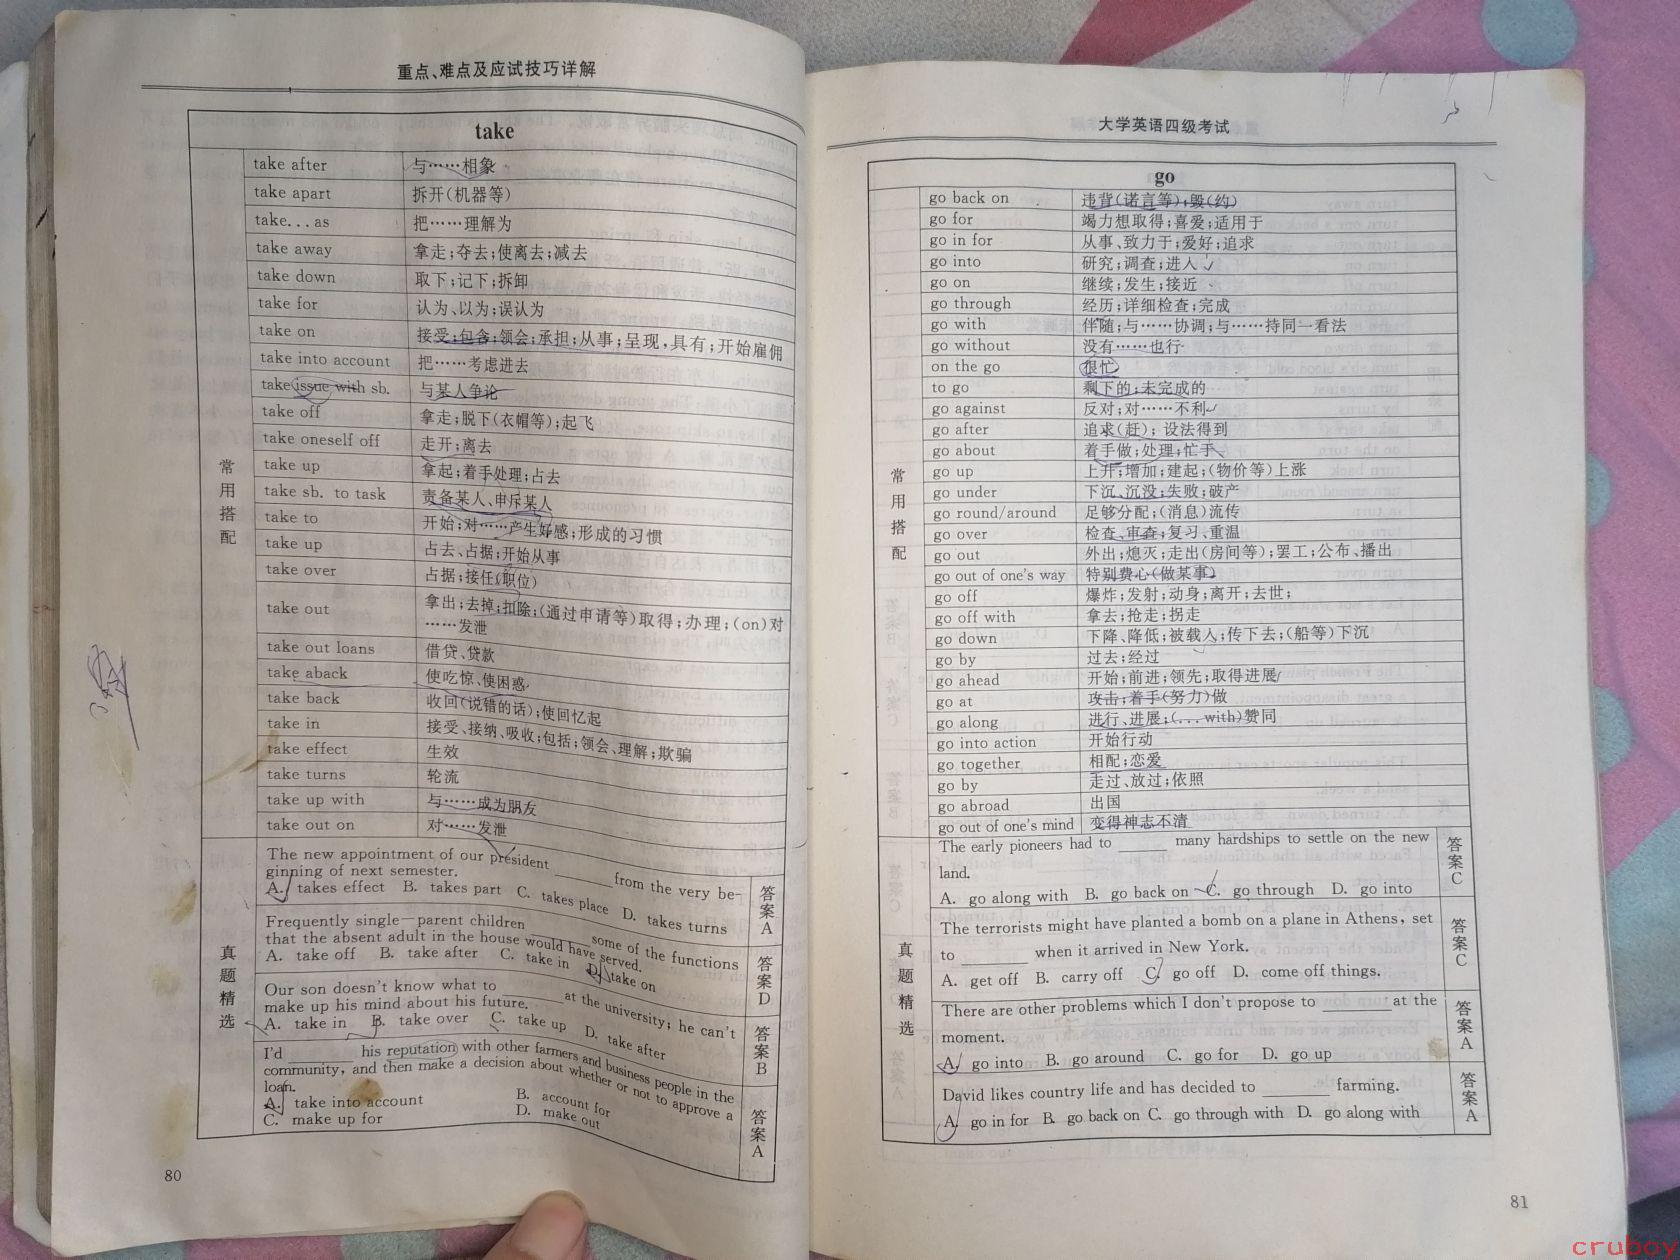 重点、难点及应试技巧详解
take
常用搭配
take after 与……相象
take apart 拆开(机器等)
take...as 把……理解为
take away 拿走;夺去;使离去;减去
take down 取下;记下;拆卸
take for 认为、以为;误认为
take on 接受;包含;领会;承担;从事;呈现,具有;开始雇佣
take into account 把……考虑进去
take issue with sb. 与某人争论
take off 拿走;脱下(衣帽等);起飞
take oneself off 走开;离去
take up 拿起;着手处理;占去
take sb. to task 责备某人、申斥某人
take to 开始;对……产生好感;形成的习惯
take up 占去、占据;开始从事
take over 占据;接任(职位)
take out 拿出;去掉;扣除;(通过申请等)取得;办理;(on)对
……发泄
take out loans 借贷、贷款
take aback 使吃惊、使困惑
take back 收回(说错的话);使回忆起
take in 接受、接纳、吸收;包括;领会、理解;欺骗
take effect 生效
take turns 轮流
take up with 与……成为朋友
take out on 对……发泄
真题精选
The new appointment of our president ______ from the very be-
ginning of next semester.
A. takes effect B. takes part C. takes place D. takes turns
答案A
Frequently single—parent children ______ some of the functions
that the absent adult in the house would have served.
A. take off B. take after C. take in D. take on
答案D
Our son doesn't know what to ______ at the university; he can't
make up his mind about his future.
A. take in B. take over C. take up D. take after
答案B
I'd ______ his reputation with other farmers and business people in the
community, and then make a decision about whether or not to approve a
loan.
A. take into account B. account for
C. make up for D. make out
答案A
80
大学英语四级考试
go
常用搭配
go back on 违背(诺言等);毁(约)
go for 竭力想取得;喜爱;适用于
go in for 从事、致力于;爱好;追求
go into 研究;调查;进入
go on 继续;发生;接近
go through 经历;详细检查;完成
go with 伴随;与……协调;与……持同一看法
go without 没有……也行
on the go 很忙
to go 剩下的;未完成的
go against 反对;对……不利
go after 追求(赶);设法得到
go about 着手做;处理;忙于
go up 上升;增加;建起;(物价等)上涨
go under 下沉、沉没;失败;破产
go round/around 足够分配;(消息)流传
go over 检查、审查;复习、重温
go out 外出;熄灭;走出(房间等);罢工;公布、播出
go out of one's way 特别费心(做某事)
go off 爆炸;发射;动身;离开;去世;
go off with 拿去;抢走;拐走
go down 下降、降低;被载入;传下去;(船等)下沉
go by 过去;经过
go ahead 开始;前进;领先;取得进展
go at 攻击;着手(努力)做
go along 进行、进展;(...with)赞同
go into action 开始行动
go together 相配;恋爱
go by 走过、放过;依照
go abroad 出国
go out of one's mind 变得神志不清
真题精选
The early pioneers had to ______ many hardships to settle on the new
land.
A. go along with B. go back on C. go through D. go into
答案C
The terrorists might have planted a bomb on a plane in Athens, set
to ______ when it arrived in New York.
A. get off B. carry off C. go off D. come off things.
答案C
There are other problems which I don't propose to ______ at the
moment.
A. go into B. go around C. go for D. go up
答案A
David likes country life and has decided to ______ farming.
A. go in for B. go back on C. go through with D. go along with
答案A
81
cruboy